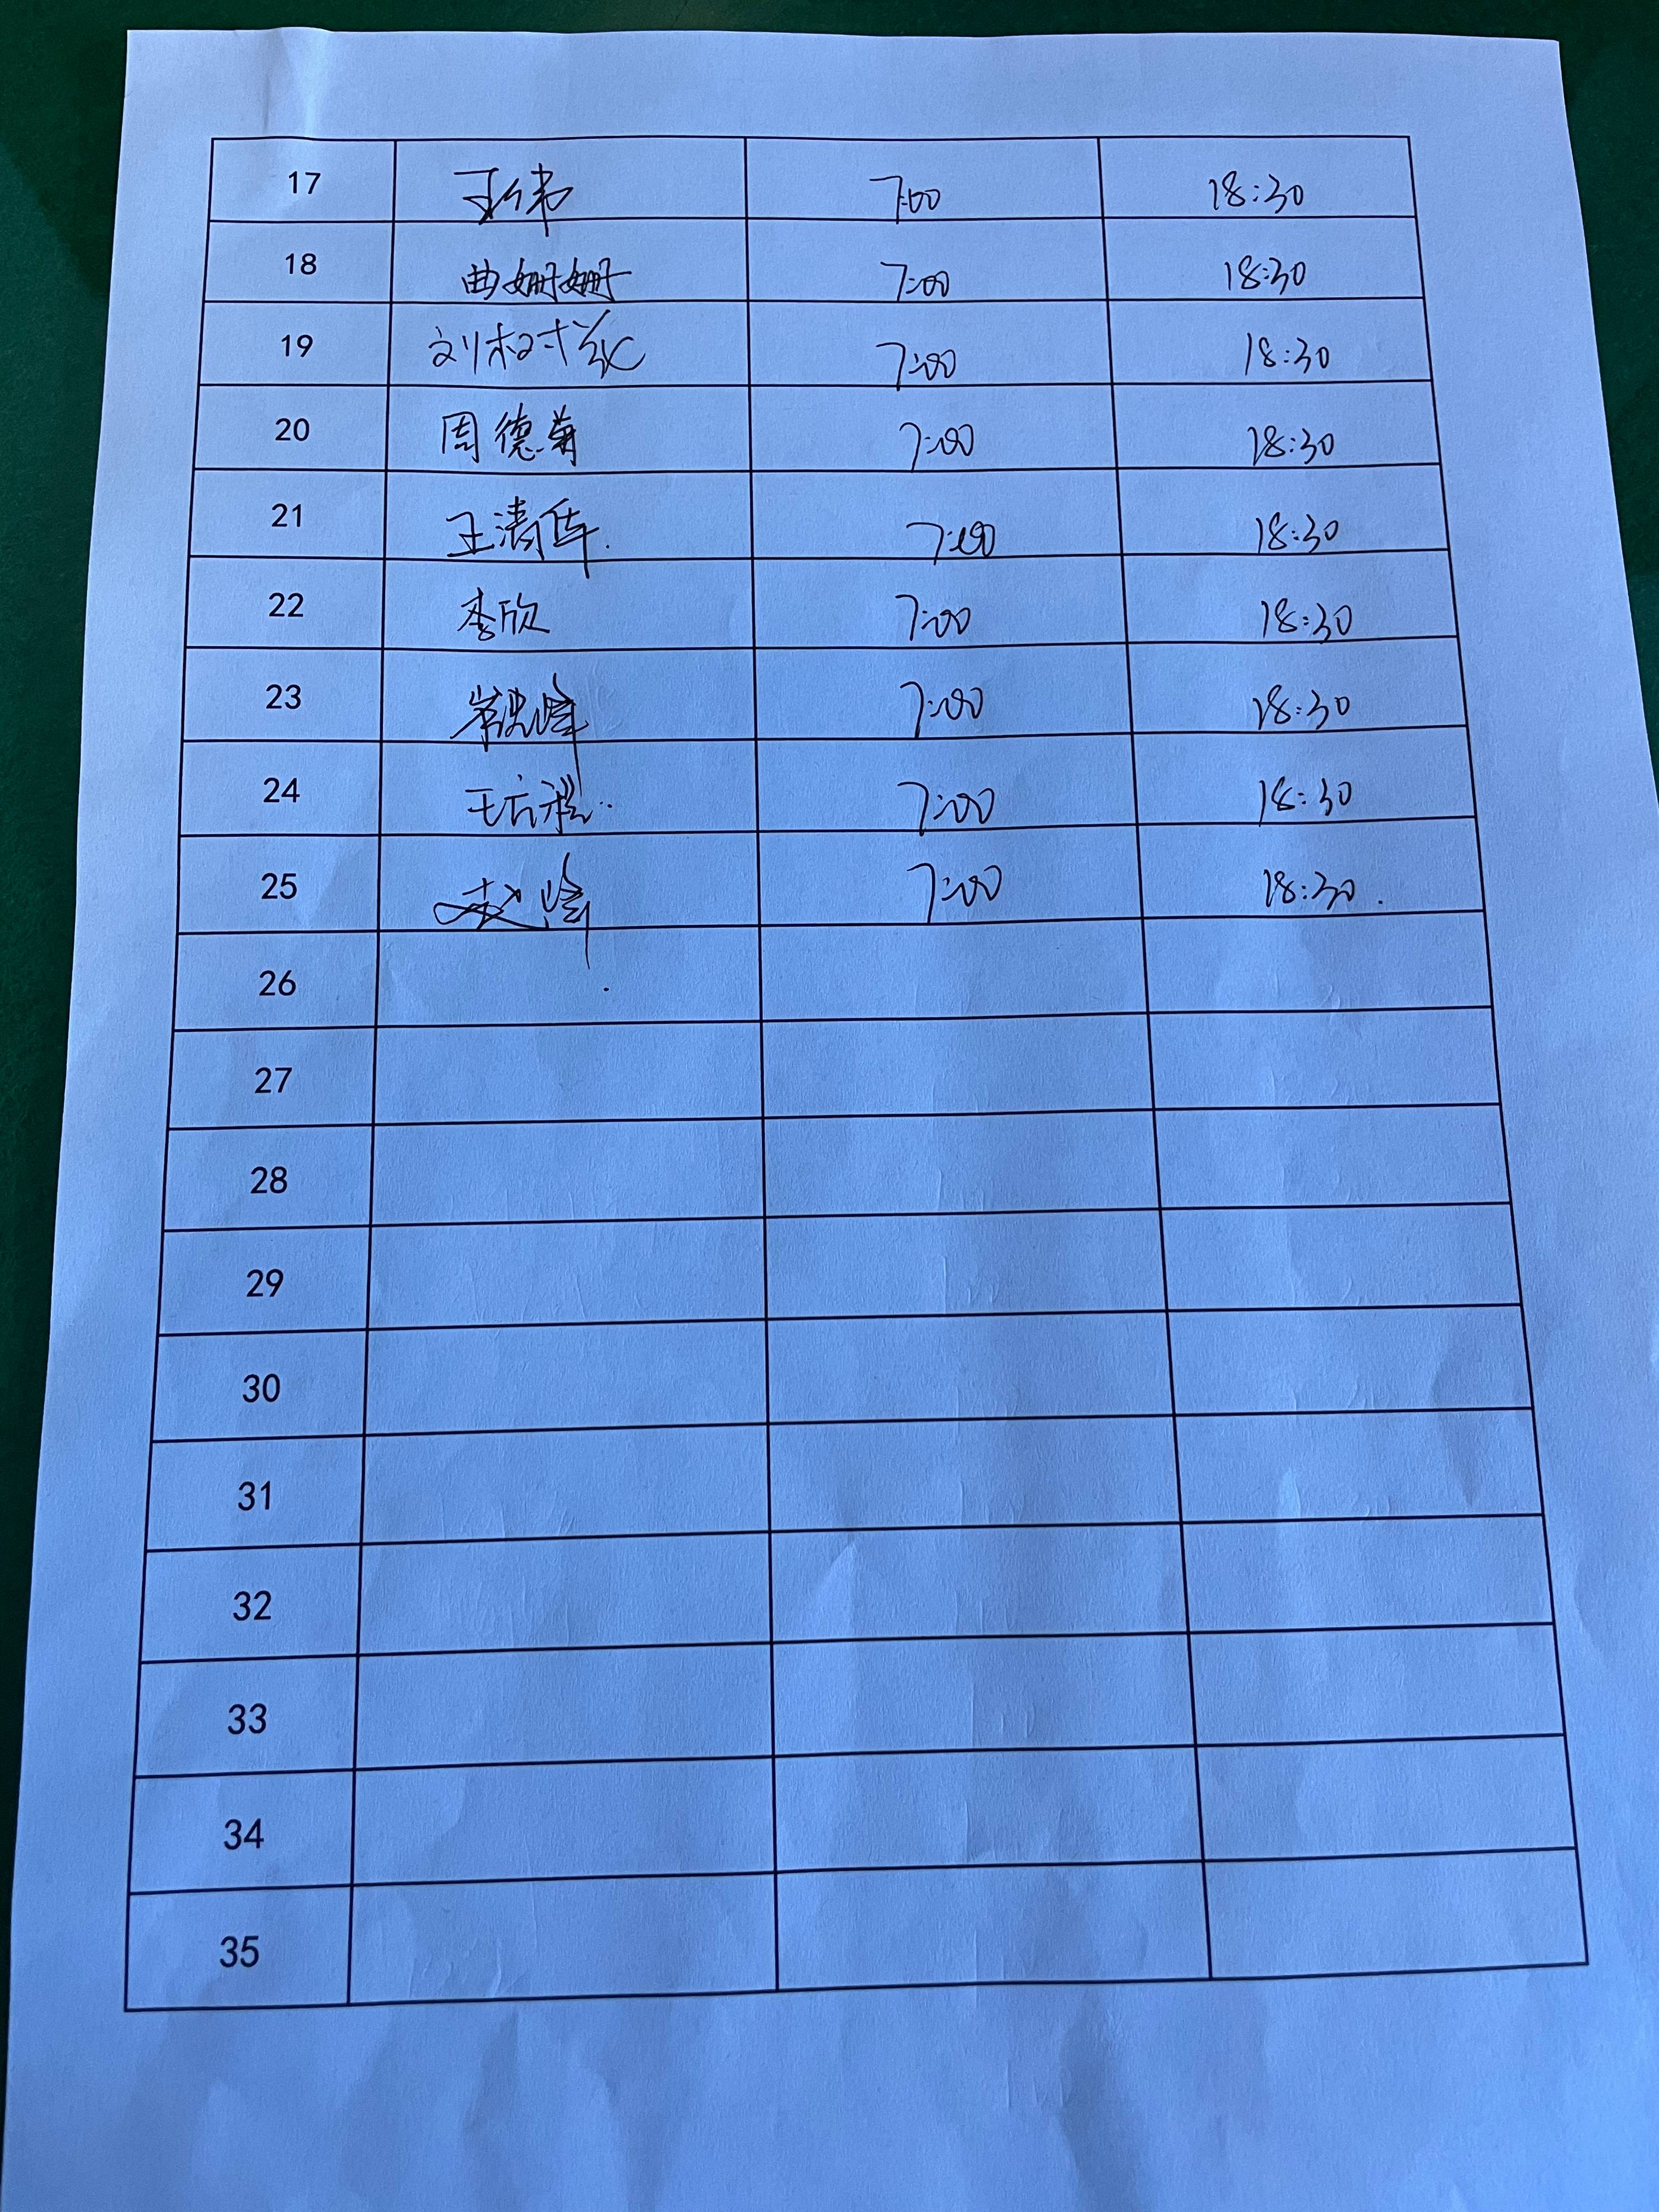 17 王伟 7:00 18:30
18 曲姗姗 7:00 18:30
19 刘树義 7:00 18:30
20 周德菊 7:00 18:30
21 王清 7:00 18:30
22 李欣 7:00 18:30
23 峰 7:00 18:30
24 王 7:00 18:30
25 赵峰 7:00 18:30.
26
27
28
29
30
31
32
33
34
35